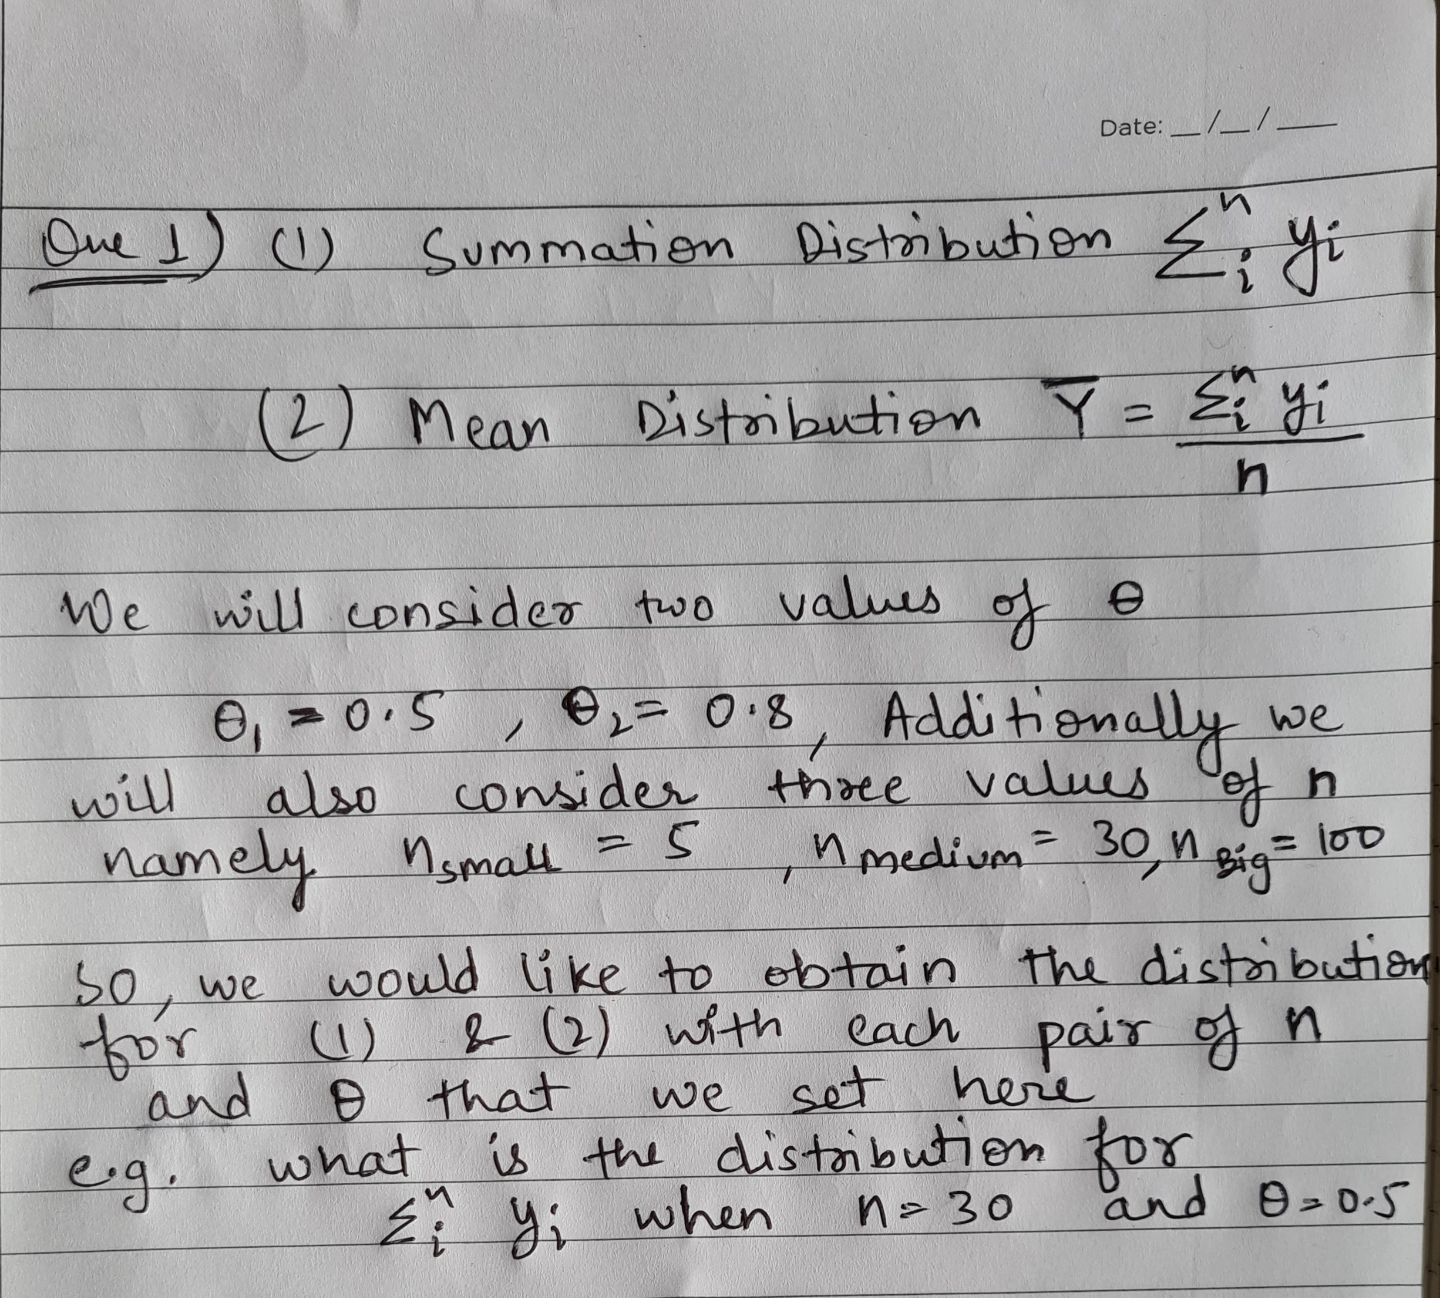 Date: __/__/____
Que 1) (1) Summation Distribution Σᵢⁿ yᵢ
(2) Mean Distribution Ȳ = Σᵢⁿ yᵢ / n
We will consider two values of θ
θ₁ = 0.5 , θ₂ = 0.8, Additionally we
will also consider three values of n
namely n small = 5 , n medium = 30, n Big = 100
So, we would like to obtain the distribution
for (1) & (2) with each pair of n
and θ that we set here
e.g. what is the distribution for
Σᵢⁿ yᵢ when n = 30 and θ = 0.5